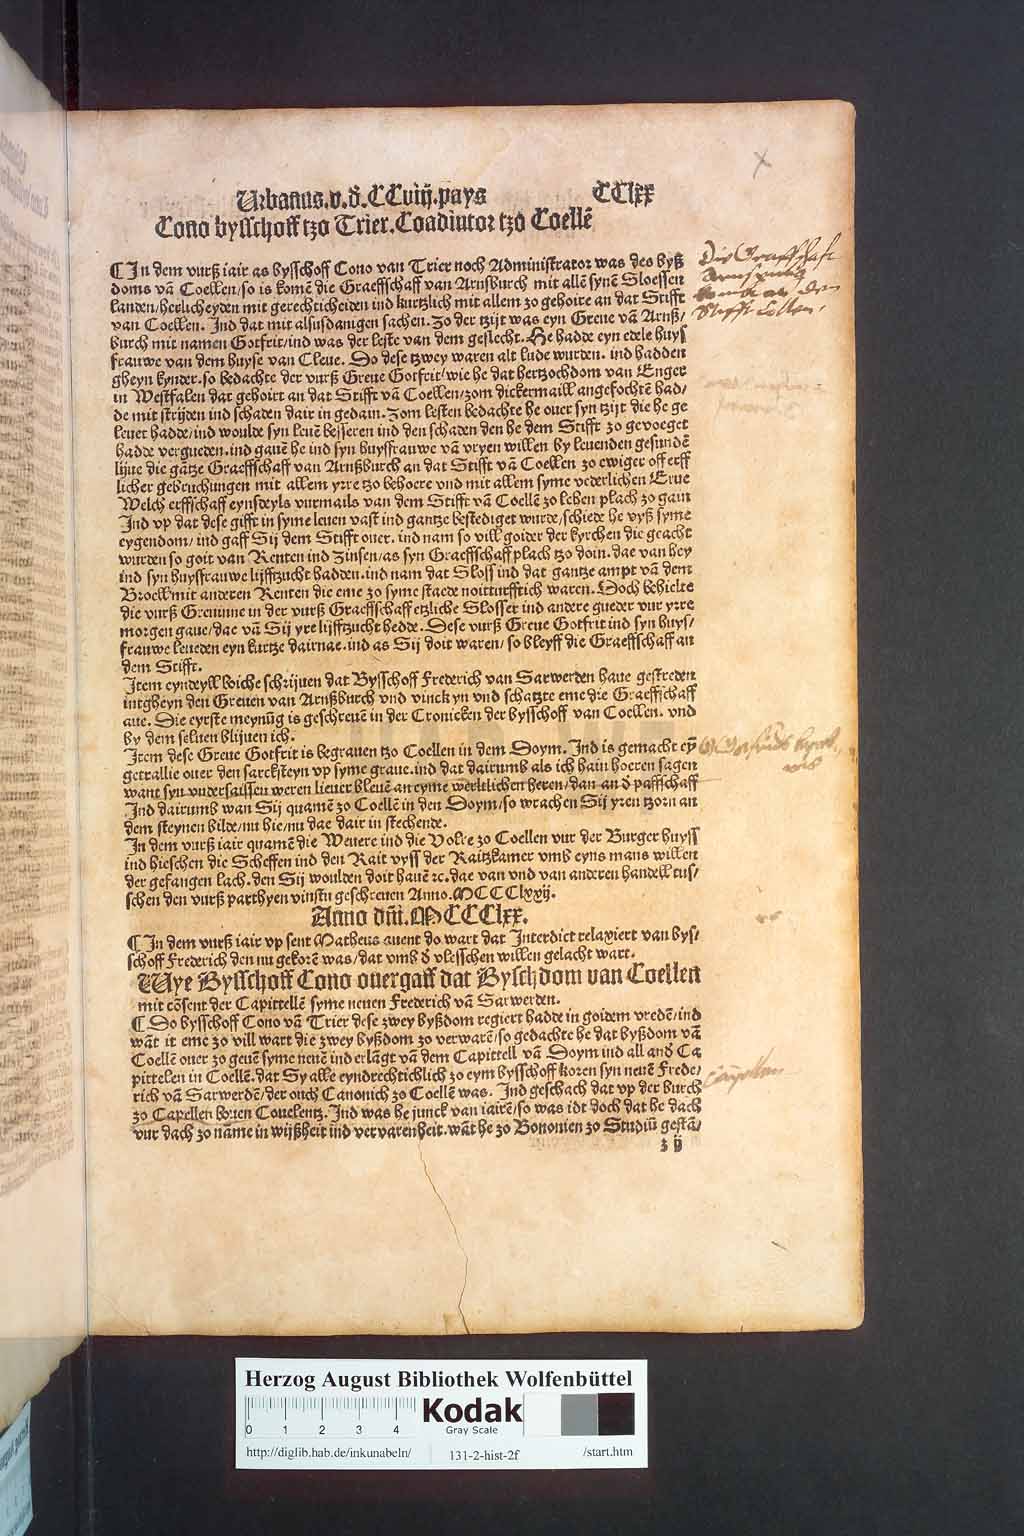 Urbanus.v.d̕.CCviij.pays CClxx
Cono bysschoff tzo Trier.Coadiutor tzo Coellē
¶ In dem vurß iair as bysschoff Cono van Trier noch Administrator was des byß
doms vā Coellen/so is komē die Graeffschaff van Arnsburch mit allē synē Sloessen
landen/herlicheyden mit gerechticheiden ind kurtzlich mit allem zo gehoire an dat Stifft
van Coellen. Ind dat mit alsusdanigen sachen. Zo der tzijt was eyn Greue vā Arnß/
burch mit namen Gotfrit/ind was der leste van dem geslecht. He hadde eyn edele huys
frauwe van dem huyse van Cleue. Do dese tzwey waren alt lude wurden. ind hadden
gheyn kynder.so bedachte der vurß Greue Gotfrit/wie he dat hertzochdom van Enger
in Westfalen dat gehoirt an dat Stifft vā Coellen/zom dickermaill angefochtē had/
de mit strijden ind schaden dair in gedain. Zom lesten bedachte he ouer syn tzijt die he ge
leuet hadde/ind woulde syn leuē besseren ind den schaden den he dem Stifft zo gevoeget
hadde vergueden.ind gauē he ind syn huysfrauwe vā vryen willen by leuenden gesundē
lijue die gātze Graeffschaff van Arnßburch an dat Stifft vā Coellen zo ewiger off erff
licher gebruchungen mit allem yrre tzo behoere vnd mit allem syme vederlichen Erue
Welch erffschaff eynsdeyls vurmails van dem Stifft vā Coellē zo lehen plach zo gain
Ind vp dat dese gifft in syme leuen vast ind gantze bestediget wurde/schiede he vyß syme
eygendom/ind gaff Sij dem Stifft ouer. ind nam so vill goider der kyrchen die geacht
wurden so goit van Renten ind Zinsen/as syn Graeffschaff plach tzo doin.dae van hey
ind syn huysfrauwe lijfftzucht hadden.ind nam dat Sloss ind dat gantze ampt vā dem
Broell mit anderen Renten die eme zo syme staede noitturfftich waren. Doch behielte
die vurß Greuinne in der vurß Graeffschaff etzliche Slosser ind andere gueder vur yrre
morgen gaue/dae vā Sij yre lijfftzucht hedde. Dese vurß Greue Gotfrit ind syn huys/
frauwe leueden eyn kurtze dairnae.ind as Sij doit waren/so bleyff die Graeffschaff an
dem Stifft.
Item eyndeyll boiche schrijuen dat Bysschoff Frederich van Sarwerden haue gestreden
intgheyn den Greuen van Arnßburch vnd vinck yn vnd schatzte eme die Graeffschaff
aue. Die eyrste meynūg is geschreuē in der Cronicken der bysschoff van Coellen. vnd
by dem seluen blijuen ich.
Item dese Greue Gotfrit is begrauen tzo Coellen in dem Doym. Ind is gemacht eȳ
getrallie ouer den sarcksteyn vp syme graue.ind dat dairumb als ich hain hoeren sagen
want syn vndersaissen weren lieuer bleuē an eyme werltlichen heren/dan an d̕ paffschaff
Ind dairumb wan Sij quamē zo Coellē in den Doym/so wrachen Sij yren tzorn an
dem steynen bilde/nu hie/nu dae dair in stechende.
In dem vurß iair quamē die Weuere ind die Volre zo Coellen vur der Burger huyss
ind hieschen die Scheffen ind den Rait vyss der Raitzkamer vmb eyns mans willen
der gefangen lach.den Sij woulden doit hauē ꝛc.dae van vnd van anderen handell tus/
schen den vurß parthyen vinstu geschreuen Anno.MCCCCLxxij.
Anno dn̄i.MCCCLxx.
¶ In dem vurß iair vp sent Matheus auent do wart dat Interdict relaxiert van bys/
schoff Frederich den nu gekorē was/dat vmb d̕ vlesschen willen gelacht wart.
Wye Bysschoff Cono ouergaff dat Byschdom van Coellen
mit cōsent der Capittellē syme neuen Frederich vā Sarwerden.
¶ Do bysschoff Cono vā Trier dese zwey byßdom regiert hadde in goidem vredē/ind
wāt it eme zo vill wart die zwey byßdom zo verwarē/so gedachte he dat byßdom vā
Coellē ouer zo geuē syme neuē ind erlāgt vā dem Capittell vā Doym ind all and̕ Ca
pittelen in Coellē.dat Sy alle eyndrechtichlich zo eym bysschoff kozen syn neuē Frede/
rich vā Sarwerdē/der ouch Canonich zo Coellē was. Ind geschach dat vp der burch
zo Capellen bouen Couelentz. Ind was he junck van iairē/so was idt doch dat he dach
vur dach zo nāme in wijßheit ind vervarenheit.wāt he zo Bononien zo Studiū gestā/
z ij
Die Graffschafft
Arnspurg
kompt an den
Stifft Collen.
Capellen
Herzog August Bibliothek Wolfenbüttel
0 1 2 3 4
Kodak
Gray Scale
http://diglib.hab.de/inkunabeln/ 131-2-hist-2f /start.htm